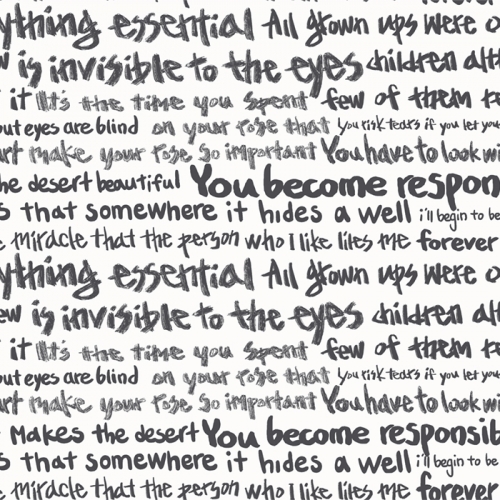 ything essential All grown ups were o
w is invisible to the eyes children alt
it It's the time you spent few of them re
but eyes are blind on your rose that You risk tears if you let you
art make your rose so important You have to look wi
he desert beautiful You become respon
s that somewhere it hides a well i'll begin to be
e miracle that the person who I like liles me forever
ything essential All grown ups were o
ew is invisible to the eyes children alt
it It's the time you spent few of them re
but eyes are blind on your rose that You risk tears if you let you
art make your rose so important You have to look wi
Makes the desert You become responsib
s that somewhere it hides a well i'll begin to be
e miracle that the person who I like liles me forever